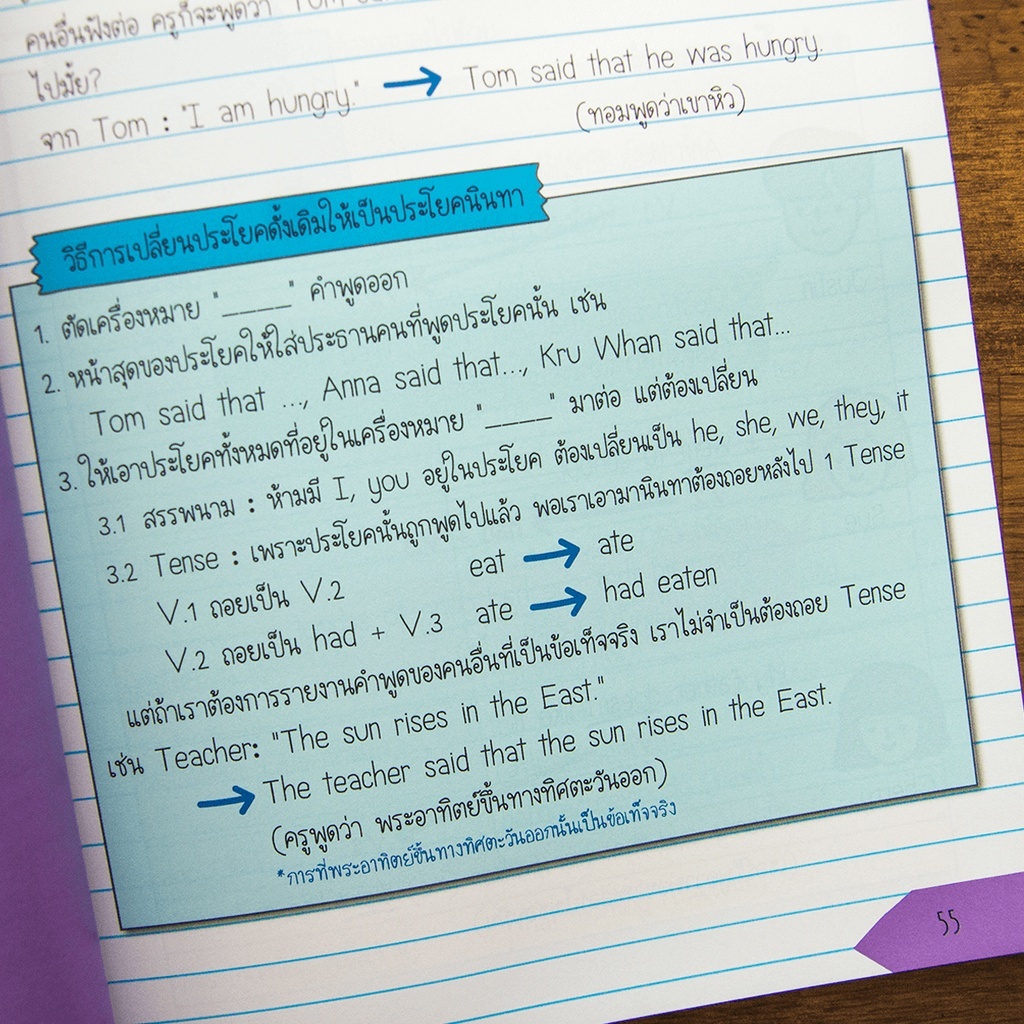 คนอื่นฟังต่อ ครูก็จะพูดว่า
ไปมั้ย?
จาก Tom : "I am hungry." → Tom said that he was hungry.
(ทอมพูดว่าเขาหิว)
วิธีการเปลี่ยนประโยคดั้งเดิมให้เป็นประโยคนินทา
1. ตัดเครื่องหมาย "____" คำพูดออก
2. หน้าสุดของประโยคให้ใส่ประธานคนที่พูดประโยคนั้น เช่น
Tom said that ..., Anna said that..., Kru Whan said that...
3. ให้เอาประโยคทั้งหมดที่อยู่ในเครื่องหมาย "____" มาต่อ แต่ต้องเปลี่ยน
3.1 สรรพนาม : ห้ามมี I, you อยู่ในประโยค ต้องเปลี่ยนเป็น he, she, we, they, it
3.2 Tense : เพราะประโยคนั้นถูกพูดไปแล้ว พอเราเอามานินทาต้องถอยหลังไป 1 Tense
V.1 ถอยเป็น V.2 eat → ate
V.2 ถอยเป็น had + V.3 ate → had eaten
แต่ถ้าเราต้องการรายงานคำพูดของคนอื่นที่เป็นข้อเท็จจริง เราไม่จำเป็นต้องถอย Tense
เช่น Teacher: "The sun rises in the East."
→ The teacher said that the sun rises in the East.
(ครูพูดว่า พระอาทิตย์ขึ้นทางทิศตะวันออก)
*การที่พระอาทิตย์ขึ้นทางทิศตะวันออกนั้นเป็นข้อเท็จจริง
55